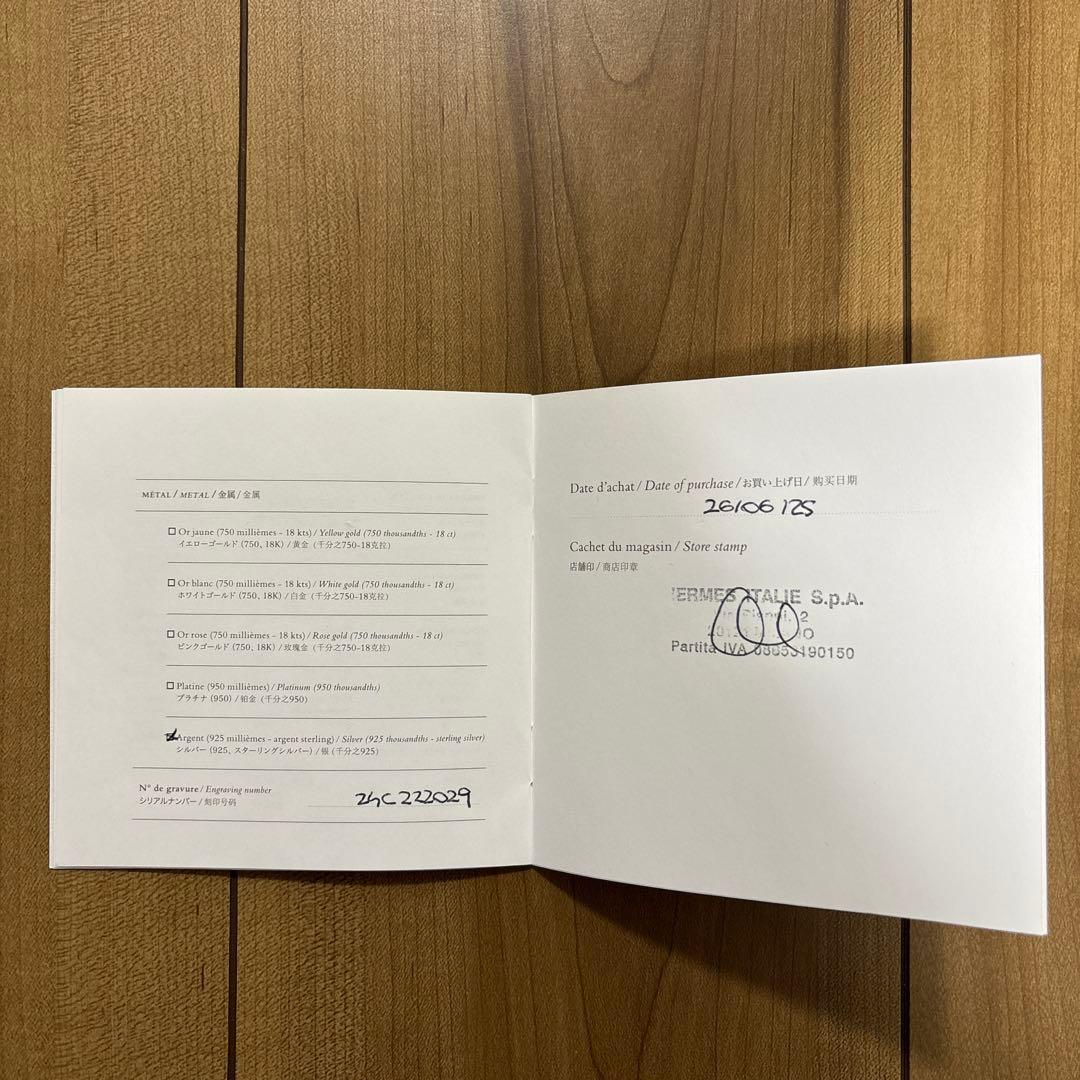 MÉTAL / METAL / 金属 / 金属
Or jaune (750 millièmes - 18 kts) / Yellow gold (750 thousandths - 18 ct)
イエローゴールド (750, 18K) / 黄金 (千分之750-18克拉)
Or blanc (750 millièmes - 18 kts) / White gold (750 thousandths - 18 ct)
ホワイトゴールド (750, 18K) / 白金 (千分之750-18克拉)
Or rose (750 millièmes - 18 kts) / Rose gold (750 thousandths - 18 ct)
ピンクゴールド (750, 18K) / 玫瑰金 (千分之750-18克拉)
Platine (950 millièmes) / Platinum (950 thousandths)
プラチナ (950) / 铂金 (千分之950)
Argent (925 millièmes - argent sterling) / Silver (925 thousandths - sterling silver)
シルバー (925, スターリングシルバー) / 银 (千分之925)
N° de gravure / Engraving number
シリアルナンバー / 刻印号码
24C222029
Date d'achat / Date of purchase / お買い上げ日 / 购买日期
26/06/25
Cachet du magasin / Store stamp
店舗印 / 商店印章
ERMES ITALIE S.p.A.
2
Partita IVA